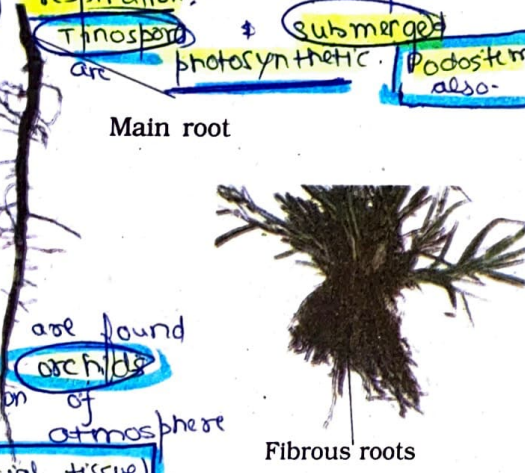 Tinospora & submerged
are photosynthetic. Podostem
also-
Main root
are found
orchids
on of
atmosphere
Fibrous roots
tissue)